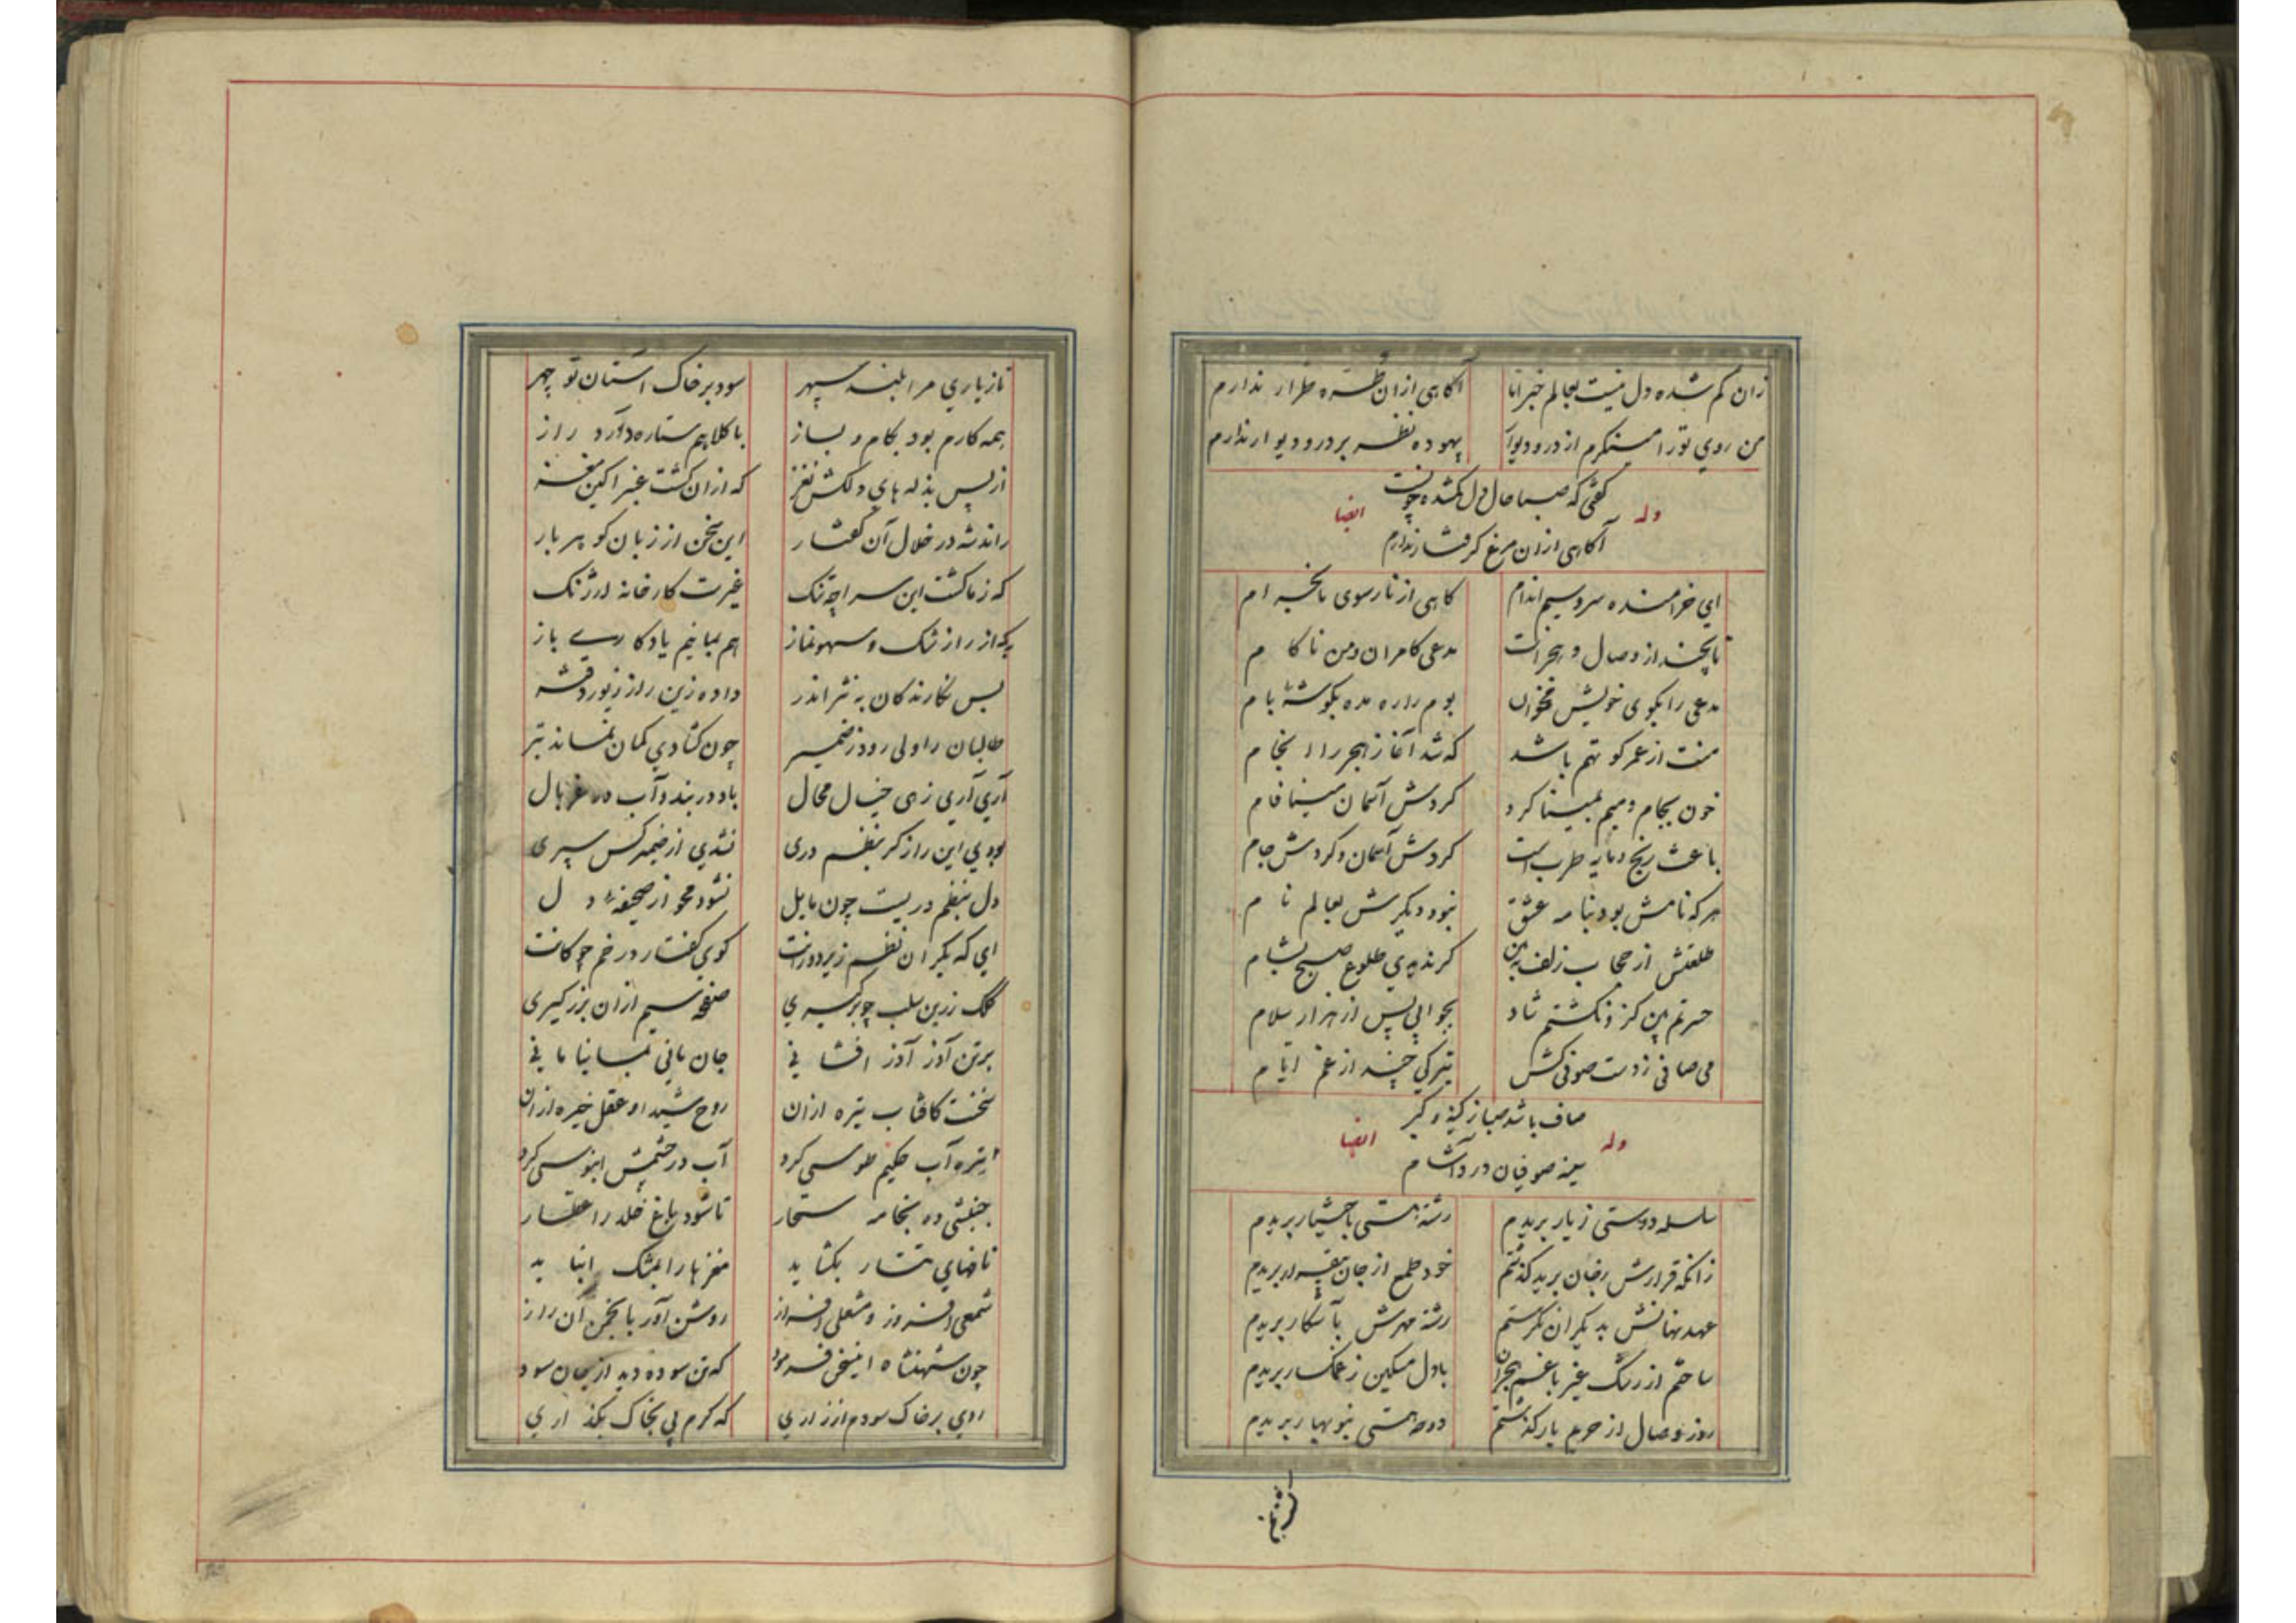 زان گم شده دل نیست بعالم خبر انا آگاهی ازان طره طرار ندارم
من روی تو را مینگرم از در و دیوار بیهوده نظر بر در و دیوار ندارم
گفتی که صبا حال دل گمشده چونست
وله ایضا
آگاهی ازان مرغ گرفتار ندارم
ای خرامنده سرو سیم اندام گاهی از ناز سوی ما بخرام
تا بچند از وصال و هجرانت مدعی کامران و من ناکام
مدعی را بکوی خویش مخوان بوم را ره مده بگوشه بام
منت از عمر کوتهم باشد که شد آغاز هجر را انجام
خون بجام و میم بمینا کرد گردش آسمان مینا فام
باعث رنج و مایه طرب است گردش آسمان و گردش جام
هر که نامش بود بنامه عشق نبود دیگرش بعالم نام
طلعتش از حجاب زلف ببین گر ندیدی طلوع صبح بشام
حسرتم بین کزو نگشتم شاد بجوابی پس از هزار سلام
می صافی ز دست صوفی کش بترکی چند از غم ایام
صاف باشد صبا ز کینه و کبر
وله ایضا
سینه صوفیان درد آشام
سلسله دوستی ز یار بریدم رشته هستی باختیار بریدم
زانکه قرارش رقبان برید گذشتم خود طمع از جان بیقرار بریدم
عهد نهانش بدیگران نگرستم رشته مهرش بآشکار بریدم
ساختم از رشک غیر با غم هجران با دل مسکین ز غمگسار بریدم
روز وصال از حریم یار گذشتم دوحه هستی بنوبهار بریدم
تا ز یاری مرا بلند سپهر سود بر خاک آستان تو چهر
همه کارم بود بکام و بساز با کلاهم ستاره دارد راز
از پس بذله های دلکش نغز که ازان گشت عنبر آگین مغز
راند شه در خلال آن گفتار این سخن از زبان گوهر بار
که ز ما گشت این سراچه تنگ غیرت کارخانه ارژنگ
به که از راز تنک و سهو نماز هم بمانیم یادگاری باز
بس نگارندگان به نثر اندر داده زین راز زیور دفتر
طالبان را ولی رود ز ضمیر چون گشادی کمان نماند تیر
آری آری زهی خیال محال باد در بند و آب در غربال
بودی این راز گر بنظم دری نشدی از ضمیر کس سپری
دل بنظم دریست چون مایل نشود محو از صحیفه دل
ای که یکران نظم زیر دورانت گوی گفتار در خم چوگانت
کلک زرین سلب چو برگیری صفحه سیم ازان بزر گیری
برتن آذر آذر افشانی جان مانی بمانیا مانی
سخنت کافتاب تیره ازان روح شیدا و عقل خیره ازان
تیره آب حکیم طوسی کرد آب در چشمش ابنوسی کرد
جنبشی ده بخامه سحار تا شود باغ خلد را عطار
نافهای تتار بکشاید مغزها را بمشک انباید
شمعی افروز و مشعلی افراز روشن آور بانجمن آن راز
چون شهنشاه اینسخن فرمود که تن سوده دید از بجان سود
روی بر خاک سودم از زاری که کرم پی بخاک بگذاری